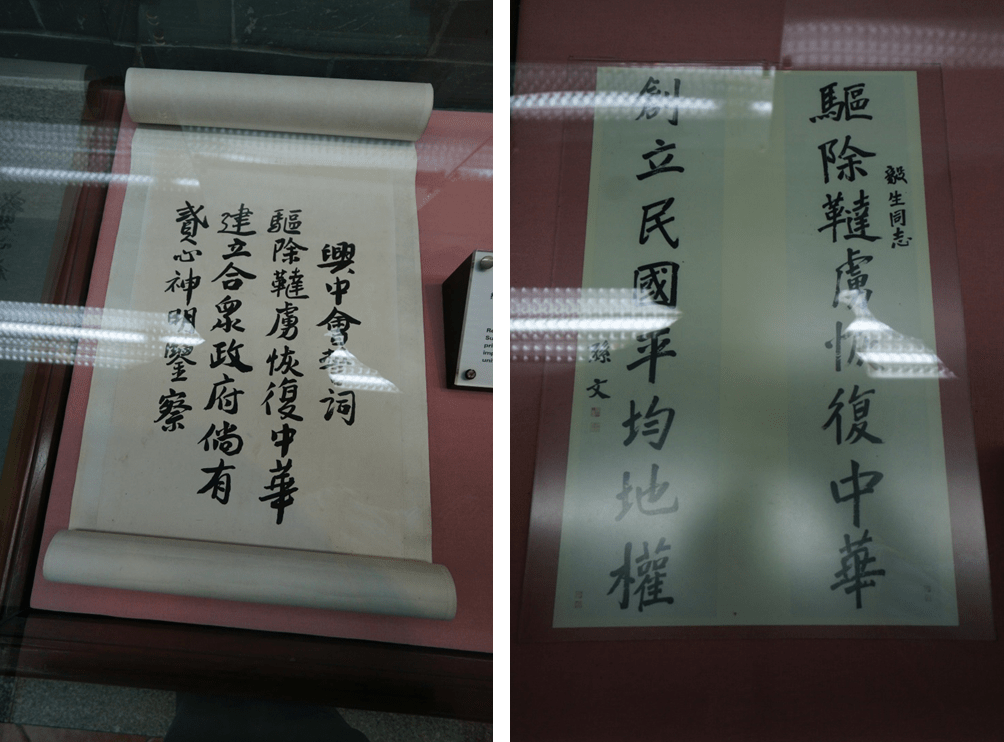 興中會誓詞
驅除韃虜恢復中華
建立合衆政府倘有
貳心神明鑒察
毅生同志
驅除韃虜恢復中華
創立民國平均地權
孫文